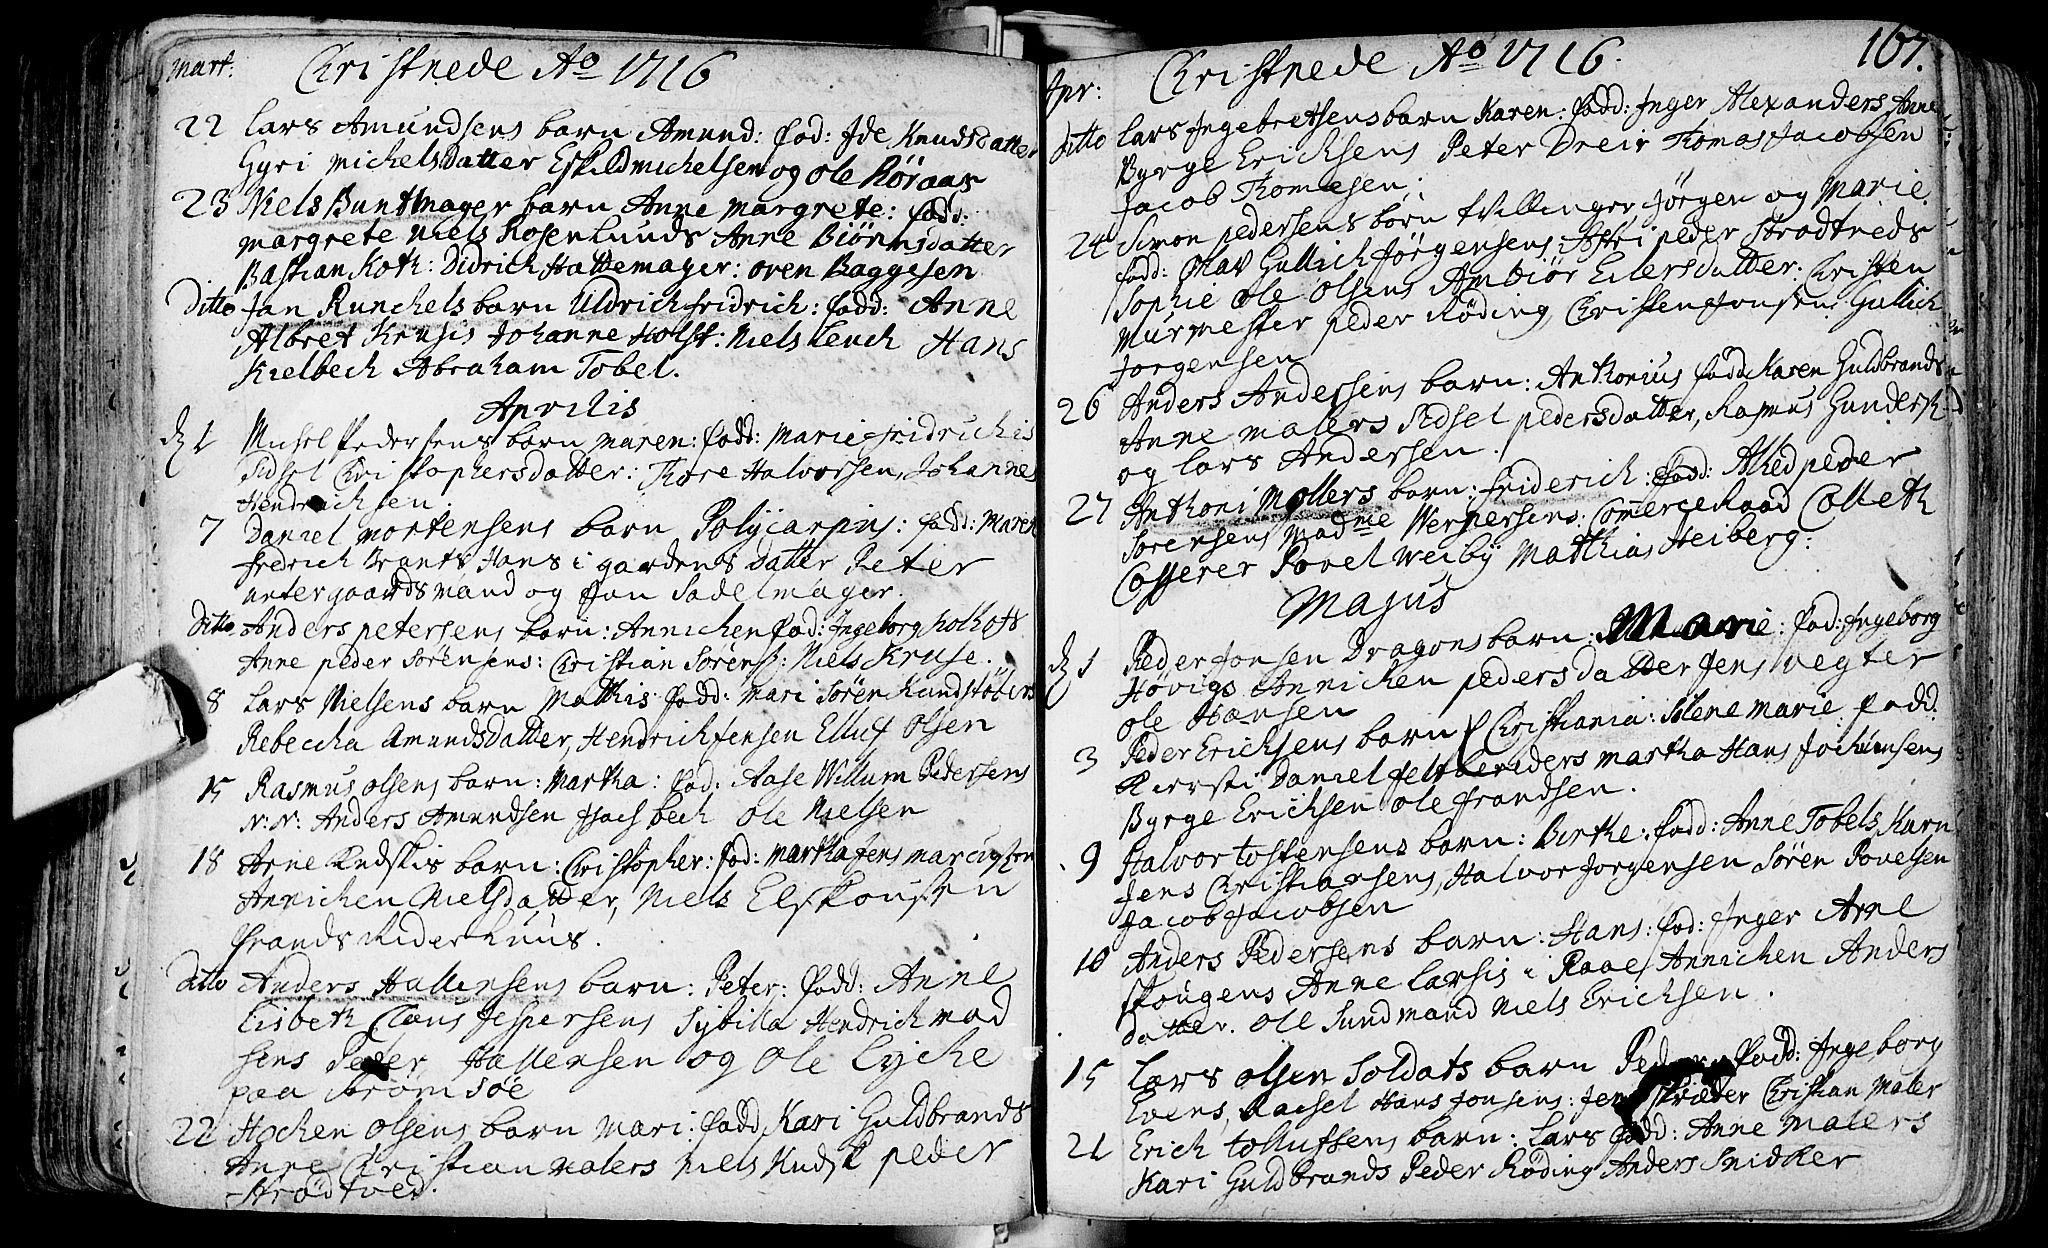 Mart: Christnede Ao 1716
22 Lars Amundsens barn Amund: fad: Ide Knudsdatter
Gyri Michelsdatter Eskild Michelsen og Ole Röraas
23 Niels Buntmager barn Anne Margrete: fadd:
Margrete Niels Rosenlunds Anne Biörnsdatter
Bastian Koth: Didrich Hattemager: oven Baggesen
Ditto Jan Runchels barn Uldrich fridrich: fadd: Anne
Albret Krusis Johanne Holst: Niels Leuch Hans
Kielbech Abraham Tobel.
Aprilis
d 1 Michel Pedersens barn Maren: fadd: Marie fridrichis
Sidsel Christophersdatter: Thore Halvorsen, Johannes
Hendrichsen.
7 Daniel Mortensens barn Polycarpus: fadd: Maren
fredrich Brants Hans i gaardens datter Peter
untergaardsmand og Jan Sadelmager.
Ditto Anders petersens barn: Annichen fad: Ingeborg Holhofs
Anne peder Sörensens: Christian Sörens: Niels Kruse.
8 Lars Nielsens barn Mathis fadd: Mari Sören Kandstöbers
Rebeccha Amundsdatter, Hendrich Jensen Elluf Olsen
15 Rasmus Olsens barn: Martha: fad: Aase Willum Pedersens
N: N: Anders Amundsen Isach bech Ole Nielsen
18 Arne Endskis barn: Christopher: fad: Martha Jens Marcussen
Annichen Nielsdatter, Niels Elskousen
frands Riderhuus.
Ditto Anders Hallensens barn: Peter: fadd: Anne
Lisbeth Claus Jespersens Sybilla Hendrich Mad
sens Peder Hallensen og Ole Lyche
paa bromsöe
22 Hachen Olsens barn Mari: fadd Kari Guldbrands
Anne Christian Malers Niels Knds: peder
strödtved.
Apr: Christnede Ao 1716. 167.
Ditto Lars Ingebretsens barn Karen: fadd: Inger Alexanders Anne
Byrge Ericksens Peter Dreir Thomas Jacobsen
Jacob Thomesen;
24 Simon pedersens börn tvillinger Jörgen og Marie.
fadd: Olav Gullich Jörgensens, Astri peder Strodtveds
Sophie Ole Olsens Ambiör Eilersdatter. Christen
Murmester peder Röding, Christen Jonsen Gullich
Jorgensen
26 Anders Andersens barn: Anthonius fadd Karen Guldbrands
Anne Malers Sidsel pedersdatter, Rasmus Gunders:
og Lars Andersen.
27 Anthoni Mollers barn: friderich: fad: Alhed peder
Sörensens Madme Wernersens: Comerce Raad Colleth
Casserer Povel Weiby Mathias Heiberg:
Majus
d 1 Peder Jonsen Dragons barn: Marie: fad: Ingeborg
Hövigs Annichen pedersdatter Jens vegter
Ole Hansen
3 Peder Ericksens barn Christiania: Solene Marie fadd:
Kiersti Daniel feltbereders Martha Hans Jochumsens
Byrge Ericksen Ole frandsen.
9 Halvor tostensens barn: Birthe: fadd: Anne Tobels Karn
Jens Christiansens, Halvor Jorgensen Sören Povelsen
Jacob Jacobsen
10 Anders Pedersens barn: Hans: fad: Inger Arne
skougens Anne Larsis i Raae, Annichen Anders
datter. Ole Sundmand Niels Ericksen.
15 Lars Olsen Soldats barn Peder: fadd: Ingeborg
Evens, Rachel Hans Jonsens: Jens skræder Christian Maler
21 Erich tolluffsens barn: Lars fadd: Anne Malers
Kari Guldbrands Peder Röding Anders Snidker